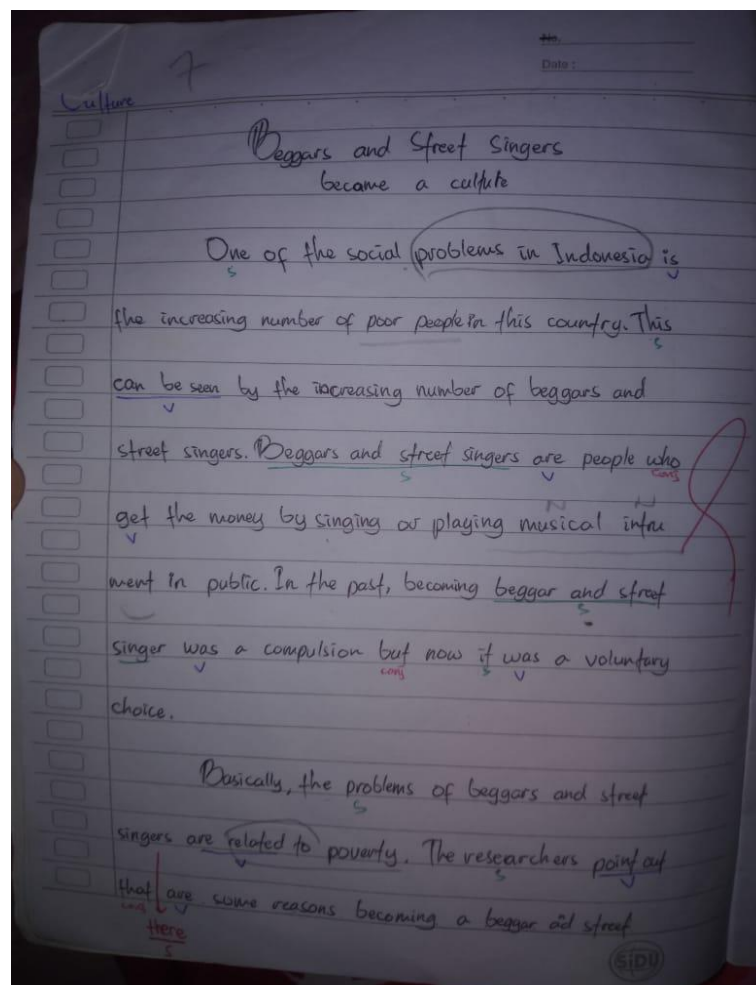 7
No.
Date :
Culture
Beggars and Street Singers
became a culture
One of the social problems in Indonesia is
s v
the increasing number of poor people in this country. This
s
can be seen by the increasing number of beggars and
v
street singers. Beggars and street singers are people who
s v conj
get the money by singing or playing musical intru
v N N
ment in public. In the past, becoming beggar and street
s
singer was a compulsion but now it was a voluntary
v conj s v
choice.
Basically, the problems of beggars and street
s
singers are related to poverty. The researchers point out
v s v
that are some reasons becoming a beggar ad street
conj v
there
s
SiDU